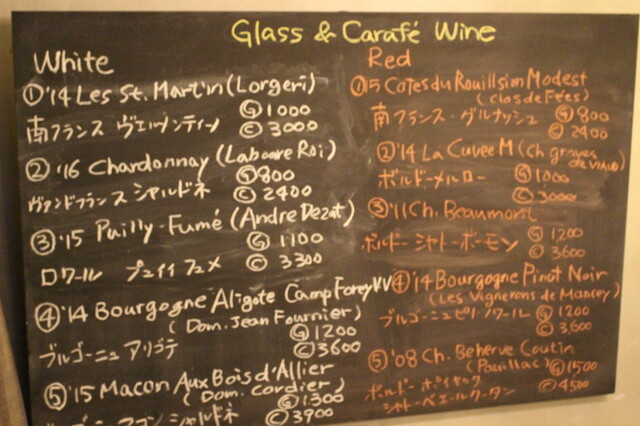 Glass & Carafé Wine
White
① '14 Les St. Martin (Lorgeri)
南フランス ヴェルメンティーノ Ⓖ 1000
Ⓒ 3000
② '16 Chardonnay (Laboure Roi)
Ⓖ 800
ヴァンドフランス シャルドネ Ⓒ 2400
③ '15 Puilly-Fumé (Andre Dezat)
Ⓖ 1100
ロワール プュイイ フュメ Ⓒ 3300
④ '14 Bourgogne Aligote Camp Forey VV
(Dom. Jean Fournier)
Ⓖ 1200
ブルゴーニュ アリゴテ Ⓒ 3600
⑤ '15 Macon Aux Bois d'Allier
(Dom. Cordier)
Ⓖ 1300
シャルドネ Ⓒ 3900
Red
① '15 Cotes du Rouillsion Modest
(Clos de Fées)
南フランス・グルナッシュ Ⓖ 800
Ⓒ 2400
② '14 La Cuvee M (Ch. graves
de
ボルドーメルロー Ⓖ 1000
Ⓒ 3000
③ '11 Ch. Beaumont
Ⓖ 1200
ボルドー シャトーボーモン Ⓒ 3600
④ '14 Bourgogne Pinot Noir
(Les Vignerons de Mancey)
ブルゴーニュピノノワール Ⓖ 1200
Ⓒ 3,600
⑤ '08 Ch. Beherve Coutin
(Pauillac)
Ⓖ 1500
ボルドー ポイヤック Ⓒ 4500
シャトーベエールクータン